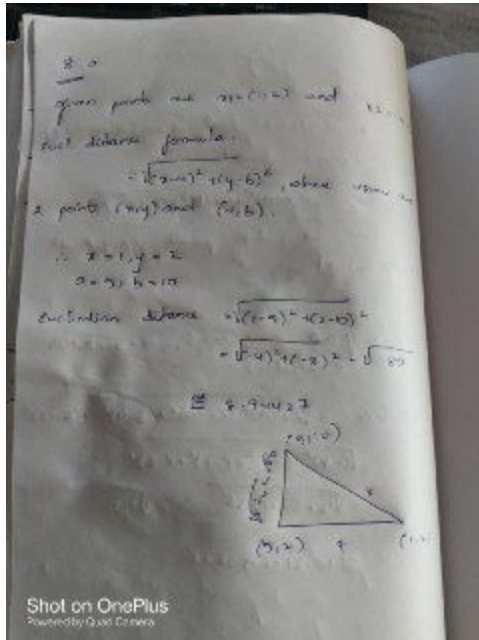 8. a
given points are x1=(1,2) and x2
Eucl distance formula.
= √(x-a)² + (y-b)², where
2 points (x,y) and (a,b).
∴ x = 1, y = 2
a = 5, b = 10
Euclidian distance = √(1-5)² + (2-10)²
= √(-4)² + (-8)² = √80
≅ 8.94427
(5,10)
(5,2) 4 (1,2)
Shot on OnePlus
Powered by Quad Camera